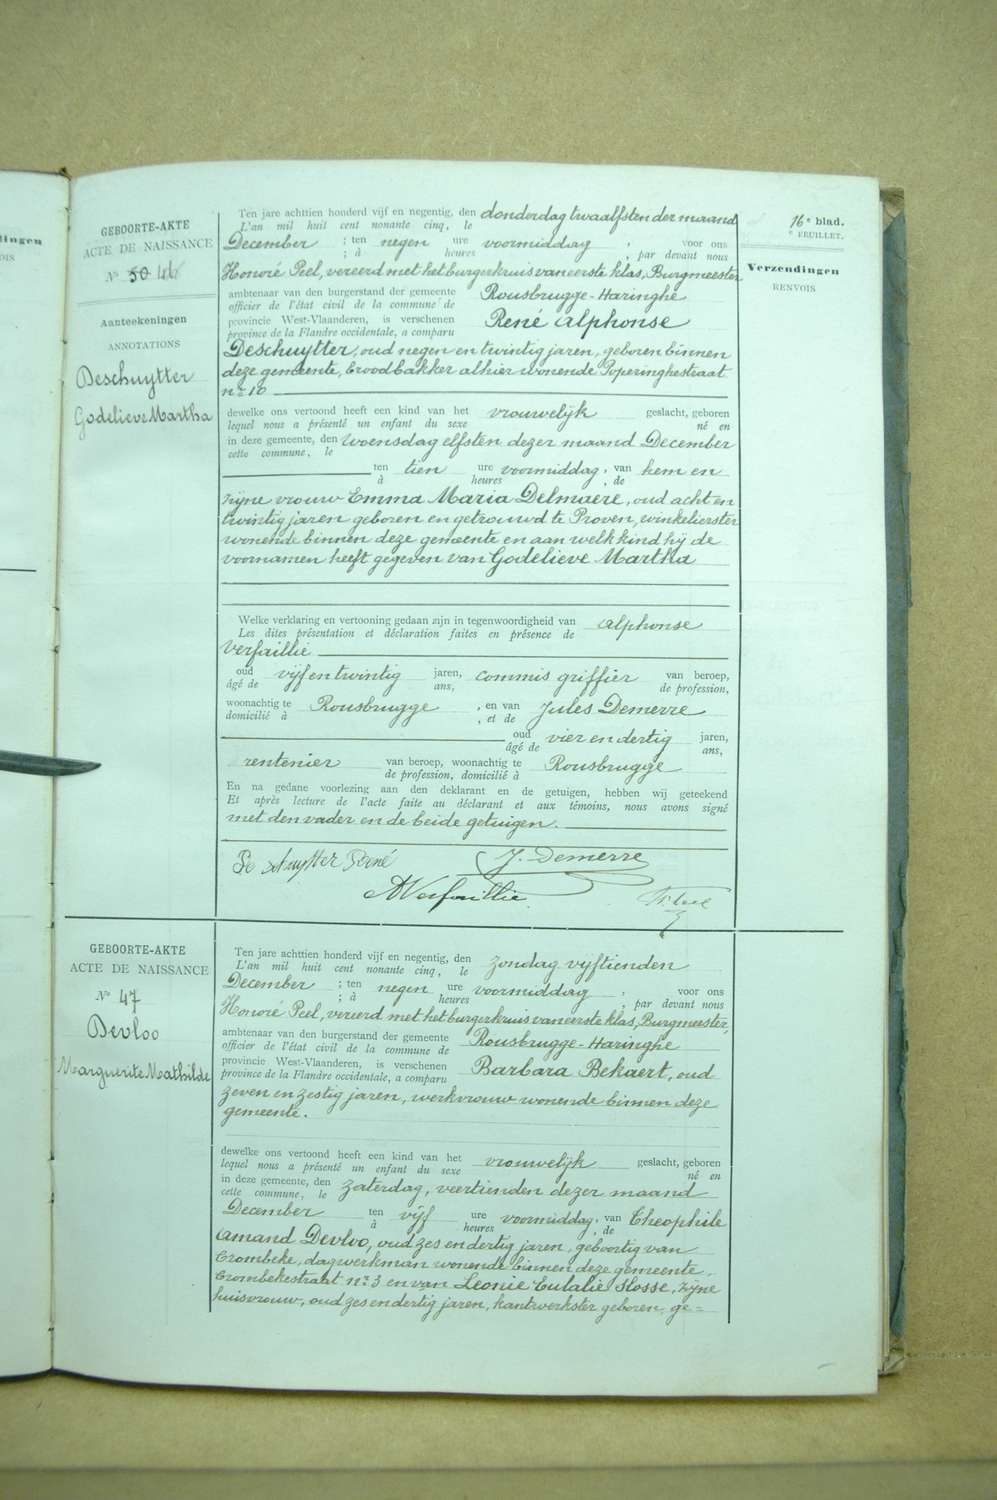 dingen
OIS
16e blad.
e FEUILLET.
Verzendingen
RENVOIS
GEBOORTE-AKTE
ACTE DE NAISSANCE
No 50 46
Aanteekeningen
ANNOTATIONS
Deschuytter
Godelieve Martha
Ten jare achttien honderd vijf en negentig, den donderdag twaalfsten der maand
L'an mil huit cent nonante cinq, le
December ; ten negen ure voormiddag , voor ons
; à heures , par devant nous
Honoré Peel, vereerd met het burgerkruis van eerste klas, Burgmeester
ambtenaar van den burgerstand der gemeente Rousbrugge-Haringhe
officier de l'état civil de la commune de
provincie West-Vlaanderen, is verschenen René Alphonse
province de la Flandre occidentale, a comparu
Deschuytter, oud negen en twintig jaren, geboren binnen
deze gemeente, broodbakker alhier wonende Poperinghestraat
no 10
dewelke ons vertoond heeft een kind van het vrouwelijk geslacht, geboren
lequel nous a présenté un enfant du sexe né en
in deze gemeente, den woensdag elfsten dezer maand December
cette commune, le
ten tien ure voormiddag, van hem en
à heures , de
zijne vrouw Emma Maria Delmaere, oud acht en
twintig jaren geboren en getrouwd te Proven, winkelierster
wonende binnen deze gemeente en aan welk kind hij de
voornamen heeft gegeven van Godelieve Martha
Welke verklaring en vertooning gedaan zijn in tegenwoordigheid van Alphonse
Les dites présentation et déclaration faites en présence de
Verfaillie
oud vijf en twintig jaren, commis griffier van beroep,
âgé de ans, de profession,
woonachtig te Rousbrugge , en van Jules Demerre
domicilié à , et de
oud vier en dertig jaren,
âgé de ans,
rentenier van beroep, woonachtig te Rousbrugge
de profession, domicilié à
En na gedane voorlezing aan den deklarant en de getuigen, hebben wij geteekend
Et après lecture de l'acte faite au déclarant et aux témoins, nous avons signé
met den vader en de beide getuigen.
De schuytter René J. Demerre
A Verfaillie H. Peel
GEBOORTE-AKTE
ACTE DE NAISSANCE
No 47
Devloo
Marguerite Mathilde
Ten jare achttien honderd vijf en negentig, den zondag vijftienden
L'an mil huit cent nonante cinq, le
December ; ten negen ure voormiddag , voor ons
; à heures , par devant nous
Honoré Peel, vereerd met het burgerkruis van eerste klas, Burgmeester,
ambtenaar van den burgerstand der gemeente Rousbrugge-Haringhe
officier de l'état civil de la commune de
provincie West-Vlaanderen, is verschenen Barbara Bekaert, oud
province de la Flandre occidentale, a comparu
zeven en zestig jaren, werkvrouw wonende binnen deze
gemeente.
dewelke ons vertoond heeft een kind van het vrouwelijk geslacht, geboren
lequel nous a présenté un enfant du sexe né en
in deze gemeente, den zaterdag, veertienden dezer maand
cette commune, le
December ten vijf ure voormiddag, van Theophile
à heures , de
Amand Devloo, oud zes en dertig jaren, geboortig van
Crombeke, dagwerkman wonende binnen deze gemeente,
Crombekestraat no 3 en van Leonie Eulalie Slosse, zijne
huisvrouw, oud zes en dertig jaren, kantwerkster geboren, ge=